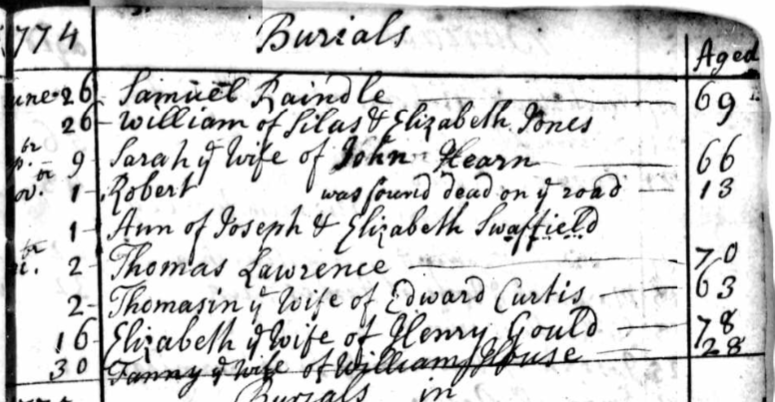 1774 Burials Aged
June 26 Samuel Raindle 69
26 William of Silas & Elizabeth Jones
9 Sarah ye Wife of John Hearn 66
1 Robert was found dead on ye road 13
1 Ann of Joseph & Elizabeth Swaffield
2 Thomas Lawrence 70
2 Thomasin ye Wife of Edward Curtis 63
16 Elizabeth ye Wife of Henry Gould 78
30 Fanny ye Wife of William House 28
Burials in